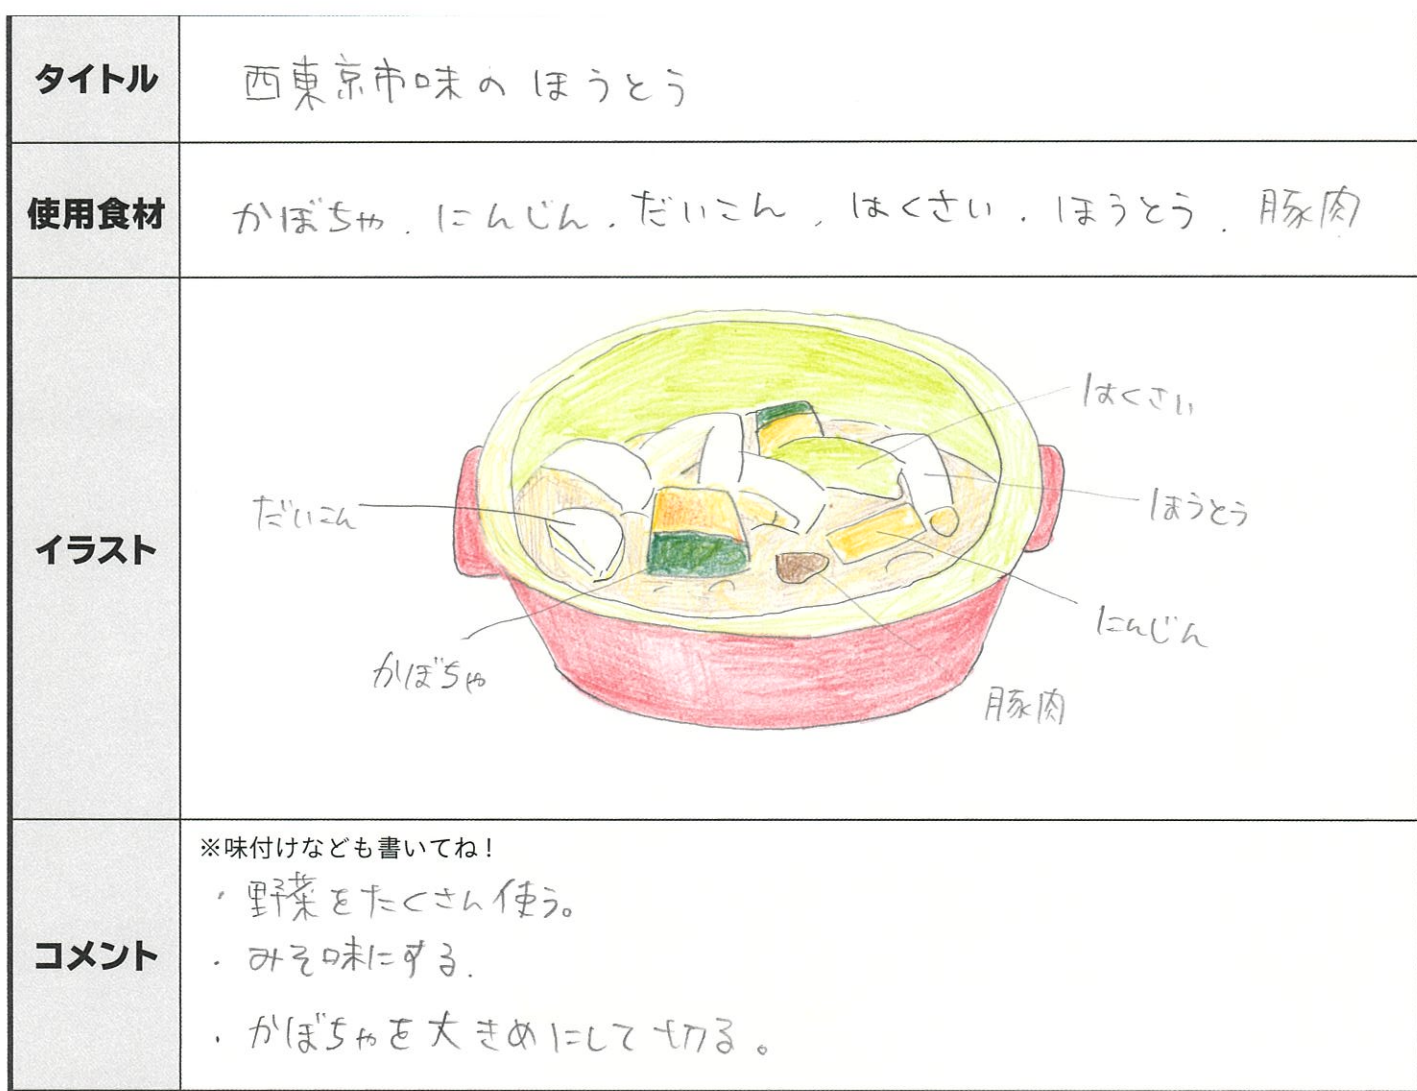 タイトル
西東京市味のほうとう
使用食材
かぼちゃ.にんじん.だいこん,はくさい.ほうとう.豚肉
イラスト
はくさい
だいこん
ほうとう
にんじん
かぼちゃ
豚肉
コメント
※味付けなども書いてね!
・野菜をたくさん使う。
・みそ味にする.
・かぼちゃを大きめにして切る。